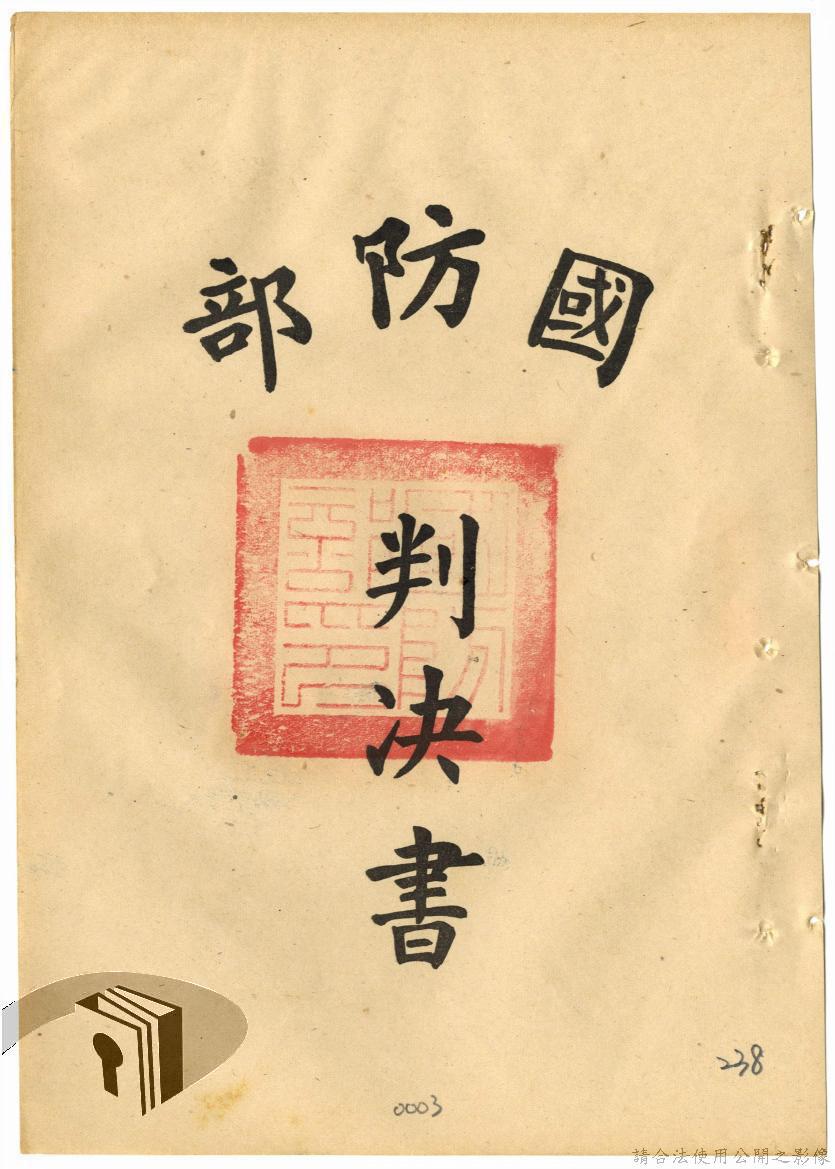 國防部
判決書
238
0003
請合法使用公開之影像